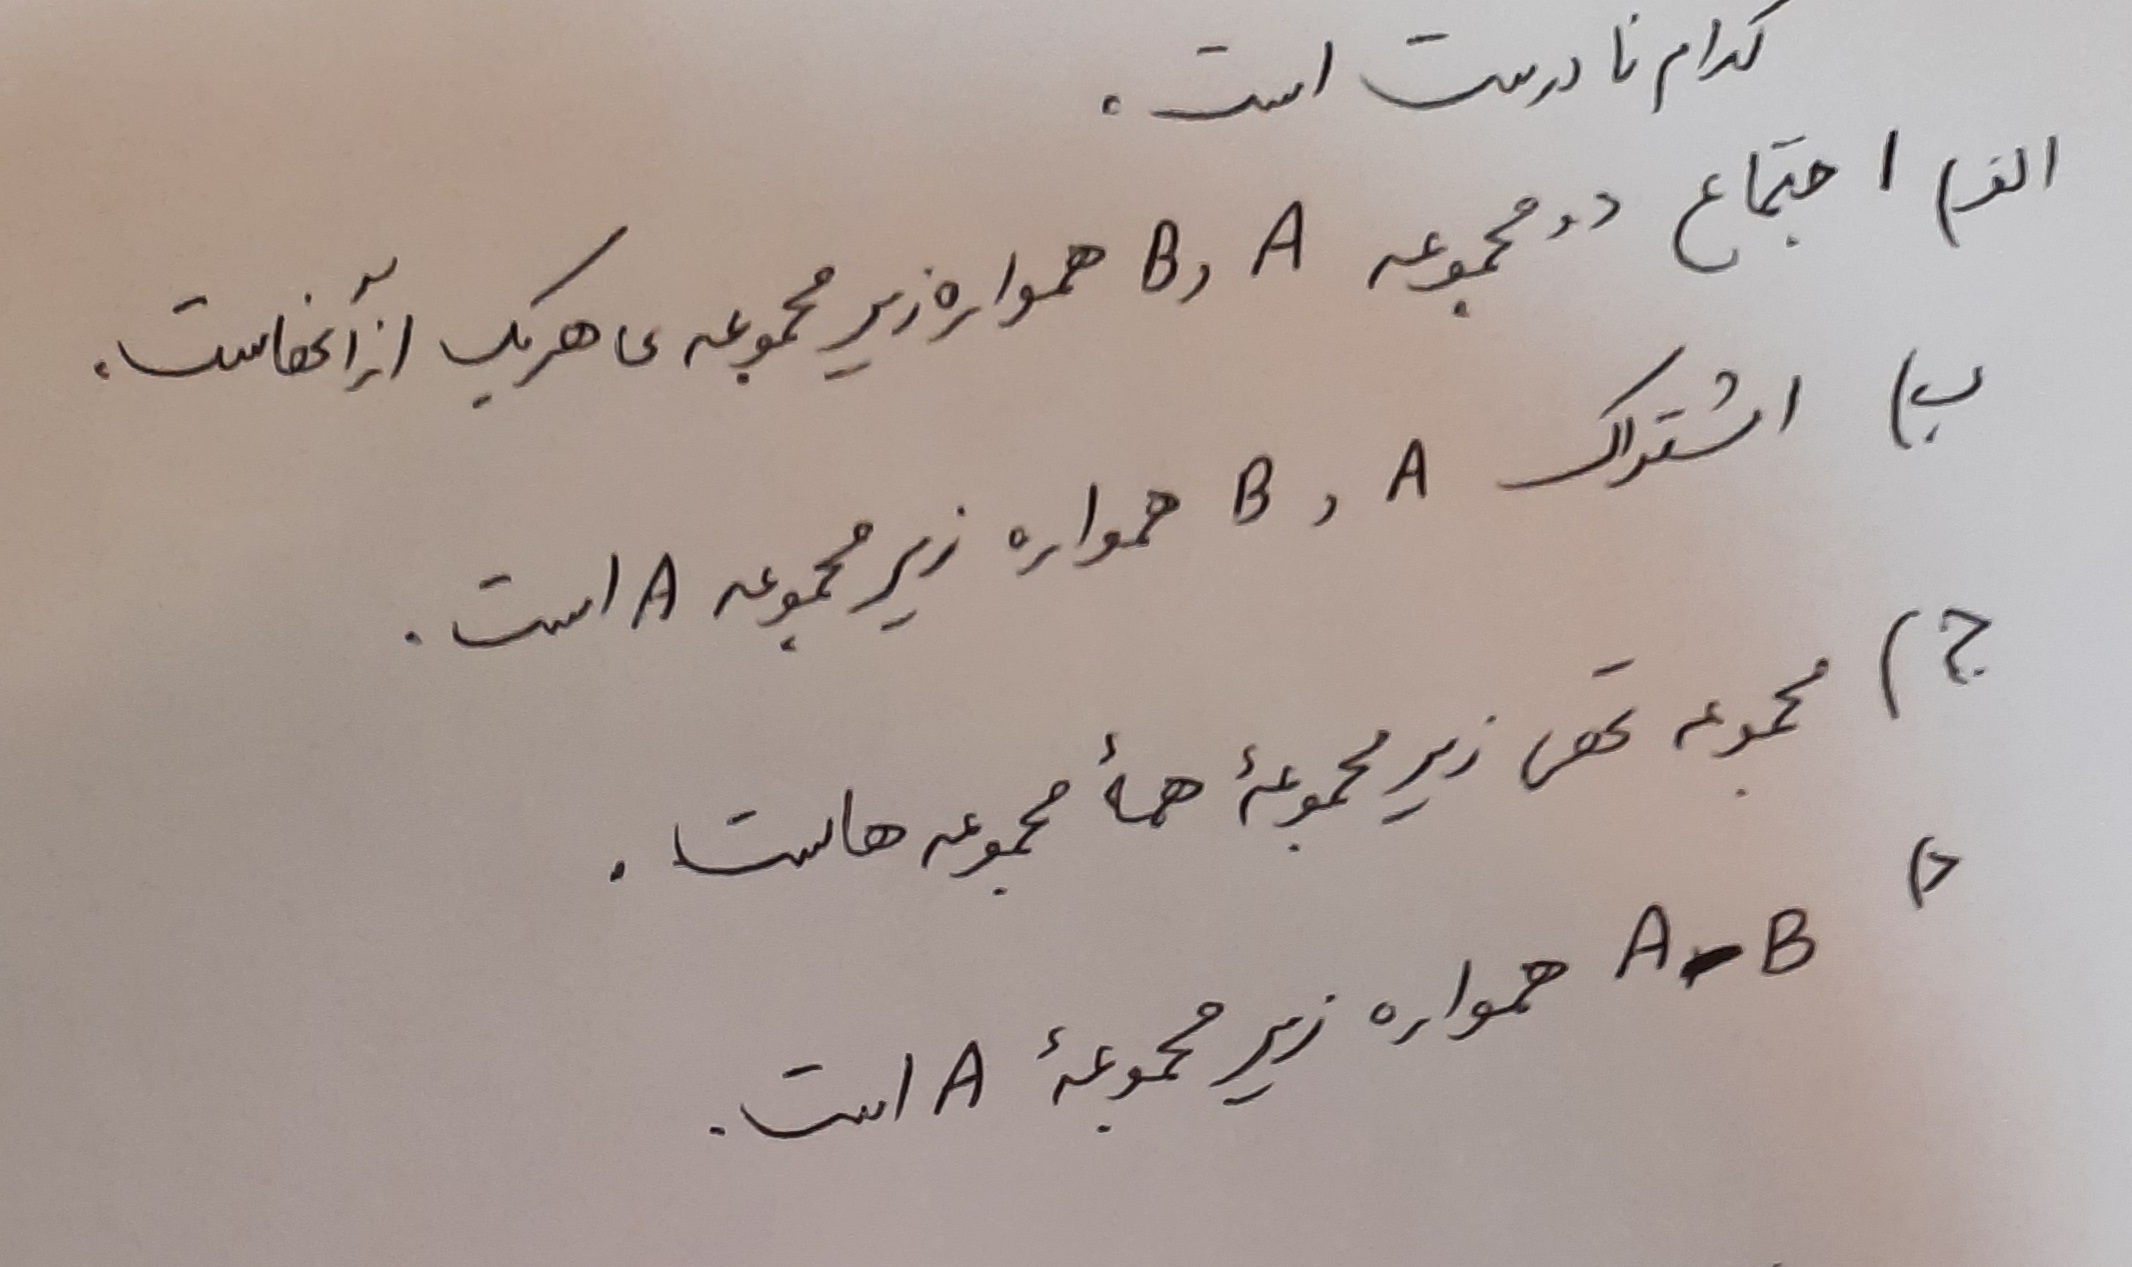 کدام نادرست است.
الف) اجتماع دو مجموعه A و B همواره زیر مجموعه ی هریک از آنهاست.
ب) اشتراک A و B همواره زیر مجموعه A است.
ج) مجموعه تهی زیر مجموعهٔ همهٔ مجموعه هاست.
د) A-B همواره زیر مجموعهٔ A است.